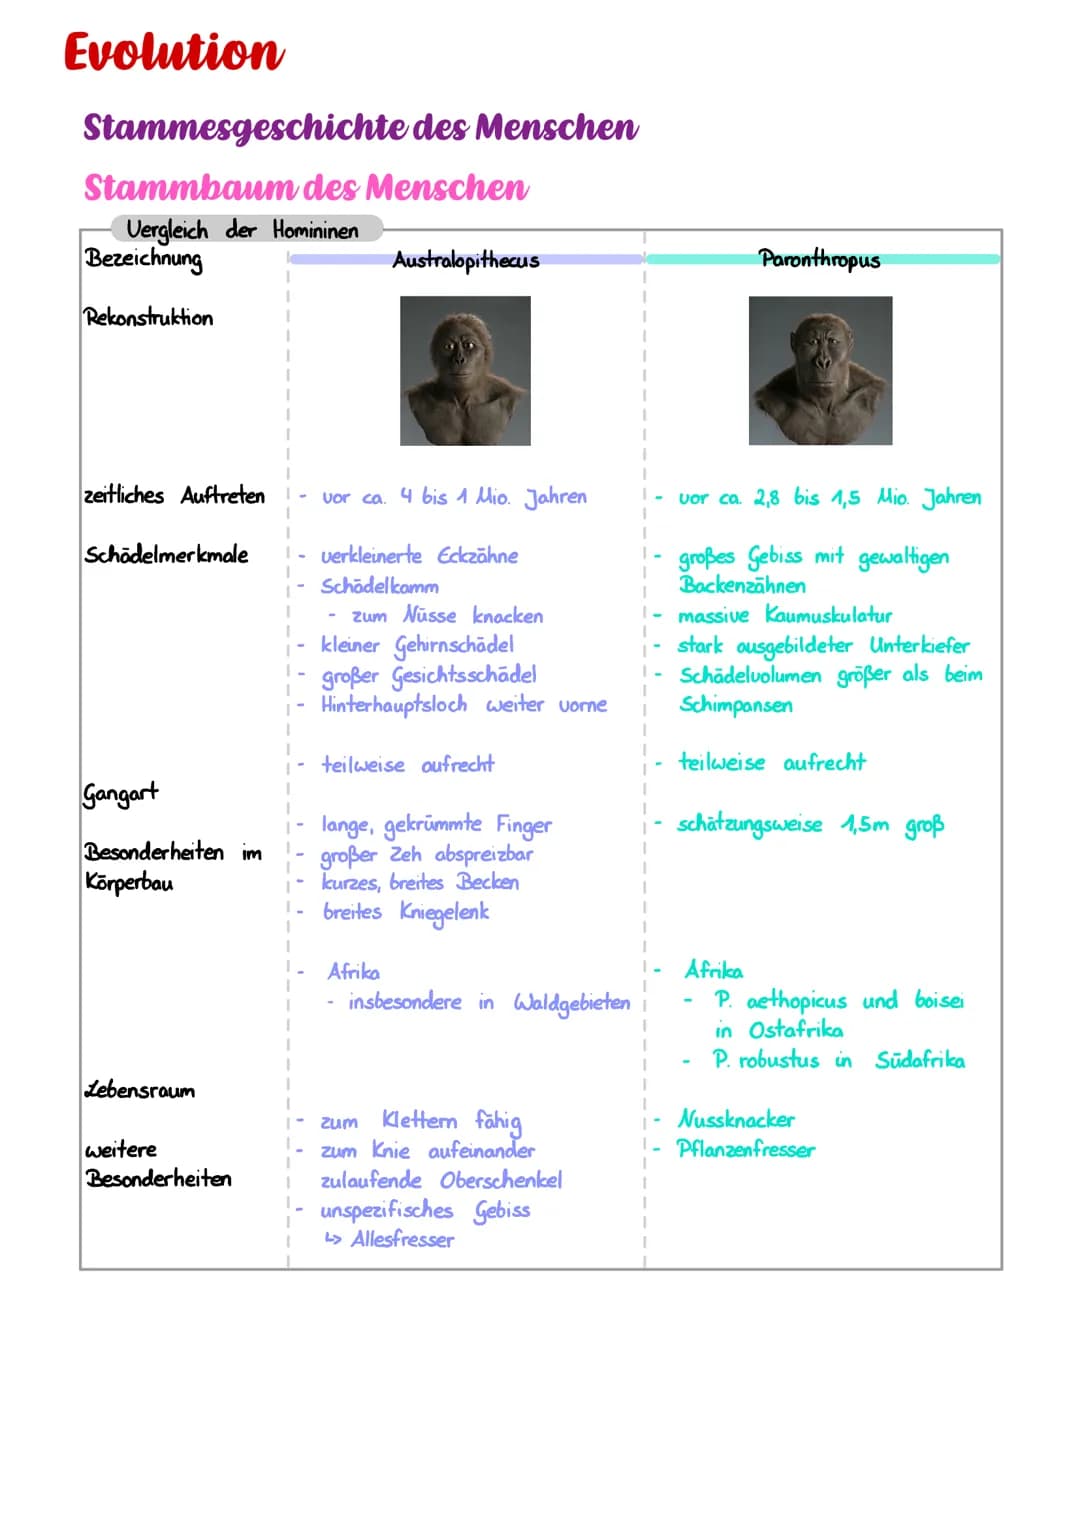 Evolution
Stammesgeschichte des Menschen
Stammbaum des Menschen
Vergleich der Homininen
Bezeichnung
Australopithecus
Paranthropus
Rekonstruktion
zeitliches Auftreten
- vor ca. 4 bis 1 Mio. Jahren
- vor ca. 2,8 bis 1,5 Mio. Jahren
Schädelmerkmale
- verkleinerte Eckzähne
- Schädelkamm
- zum Nüsse knacken
- kleiner Gehirnschädel
- großer Gesichtsschädel
- Hinterhauptsloch weiter vorne
- großes Gebiss mit gewaltigen
Backenzähnen
- massive Kaumuskulatur
- stark ausgebildeter Unterkiefer
- Schädelvolumen größer als beim
Schimpansen
Gangart
- teilweise aufrecht
- teilweise aufrecht
Besonderheiten im
Körperbau
- lange, gekrümmte Finger
- großer Zeh abspreizbar
- kurzes, breites Becken
- breites Kniegelenk
- schätzungsweise 1,5m groß
Lebensraum
- Afrika
- insbesondere in Waldgebieten
- Afrika
- P. aethopicus und boisei
in Ostafrika
- P. robustus in Südafrika
weitere
Besonderheiten
- zum Klettern fähig
- zum Knie aufeinander
zulaufende Oberschenkel
- unspezifisches Gebiss
↳ Allesfresser
- Nussknacker
- Pflanzenfresser